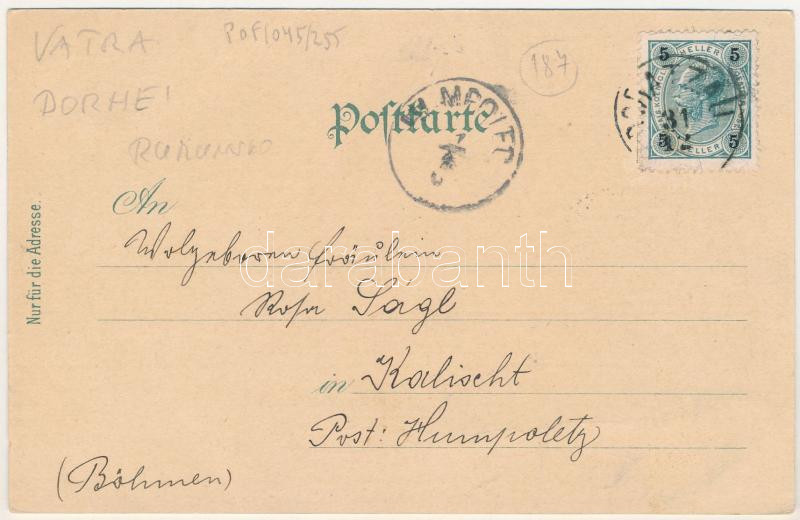 VATRA
POF/045/255
187
DORHEI
RUMUNSKO
5 HELLER 5
5 HELLER 5
31
HUMPOLEC
Postkarte
An
Wolgeboren Fräulein
Rosa Sagl
in Kalischt
Post: Humpoletz
(Böhmen)
Nur für die Adresse.
darabanth